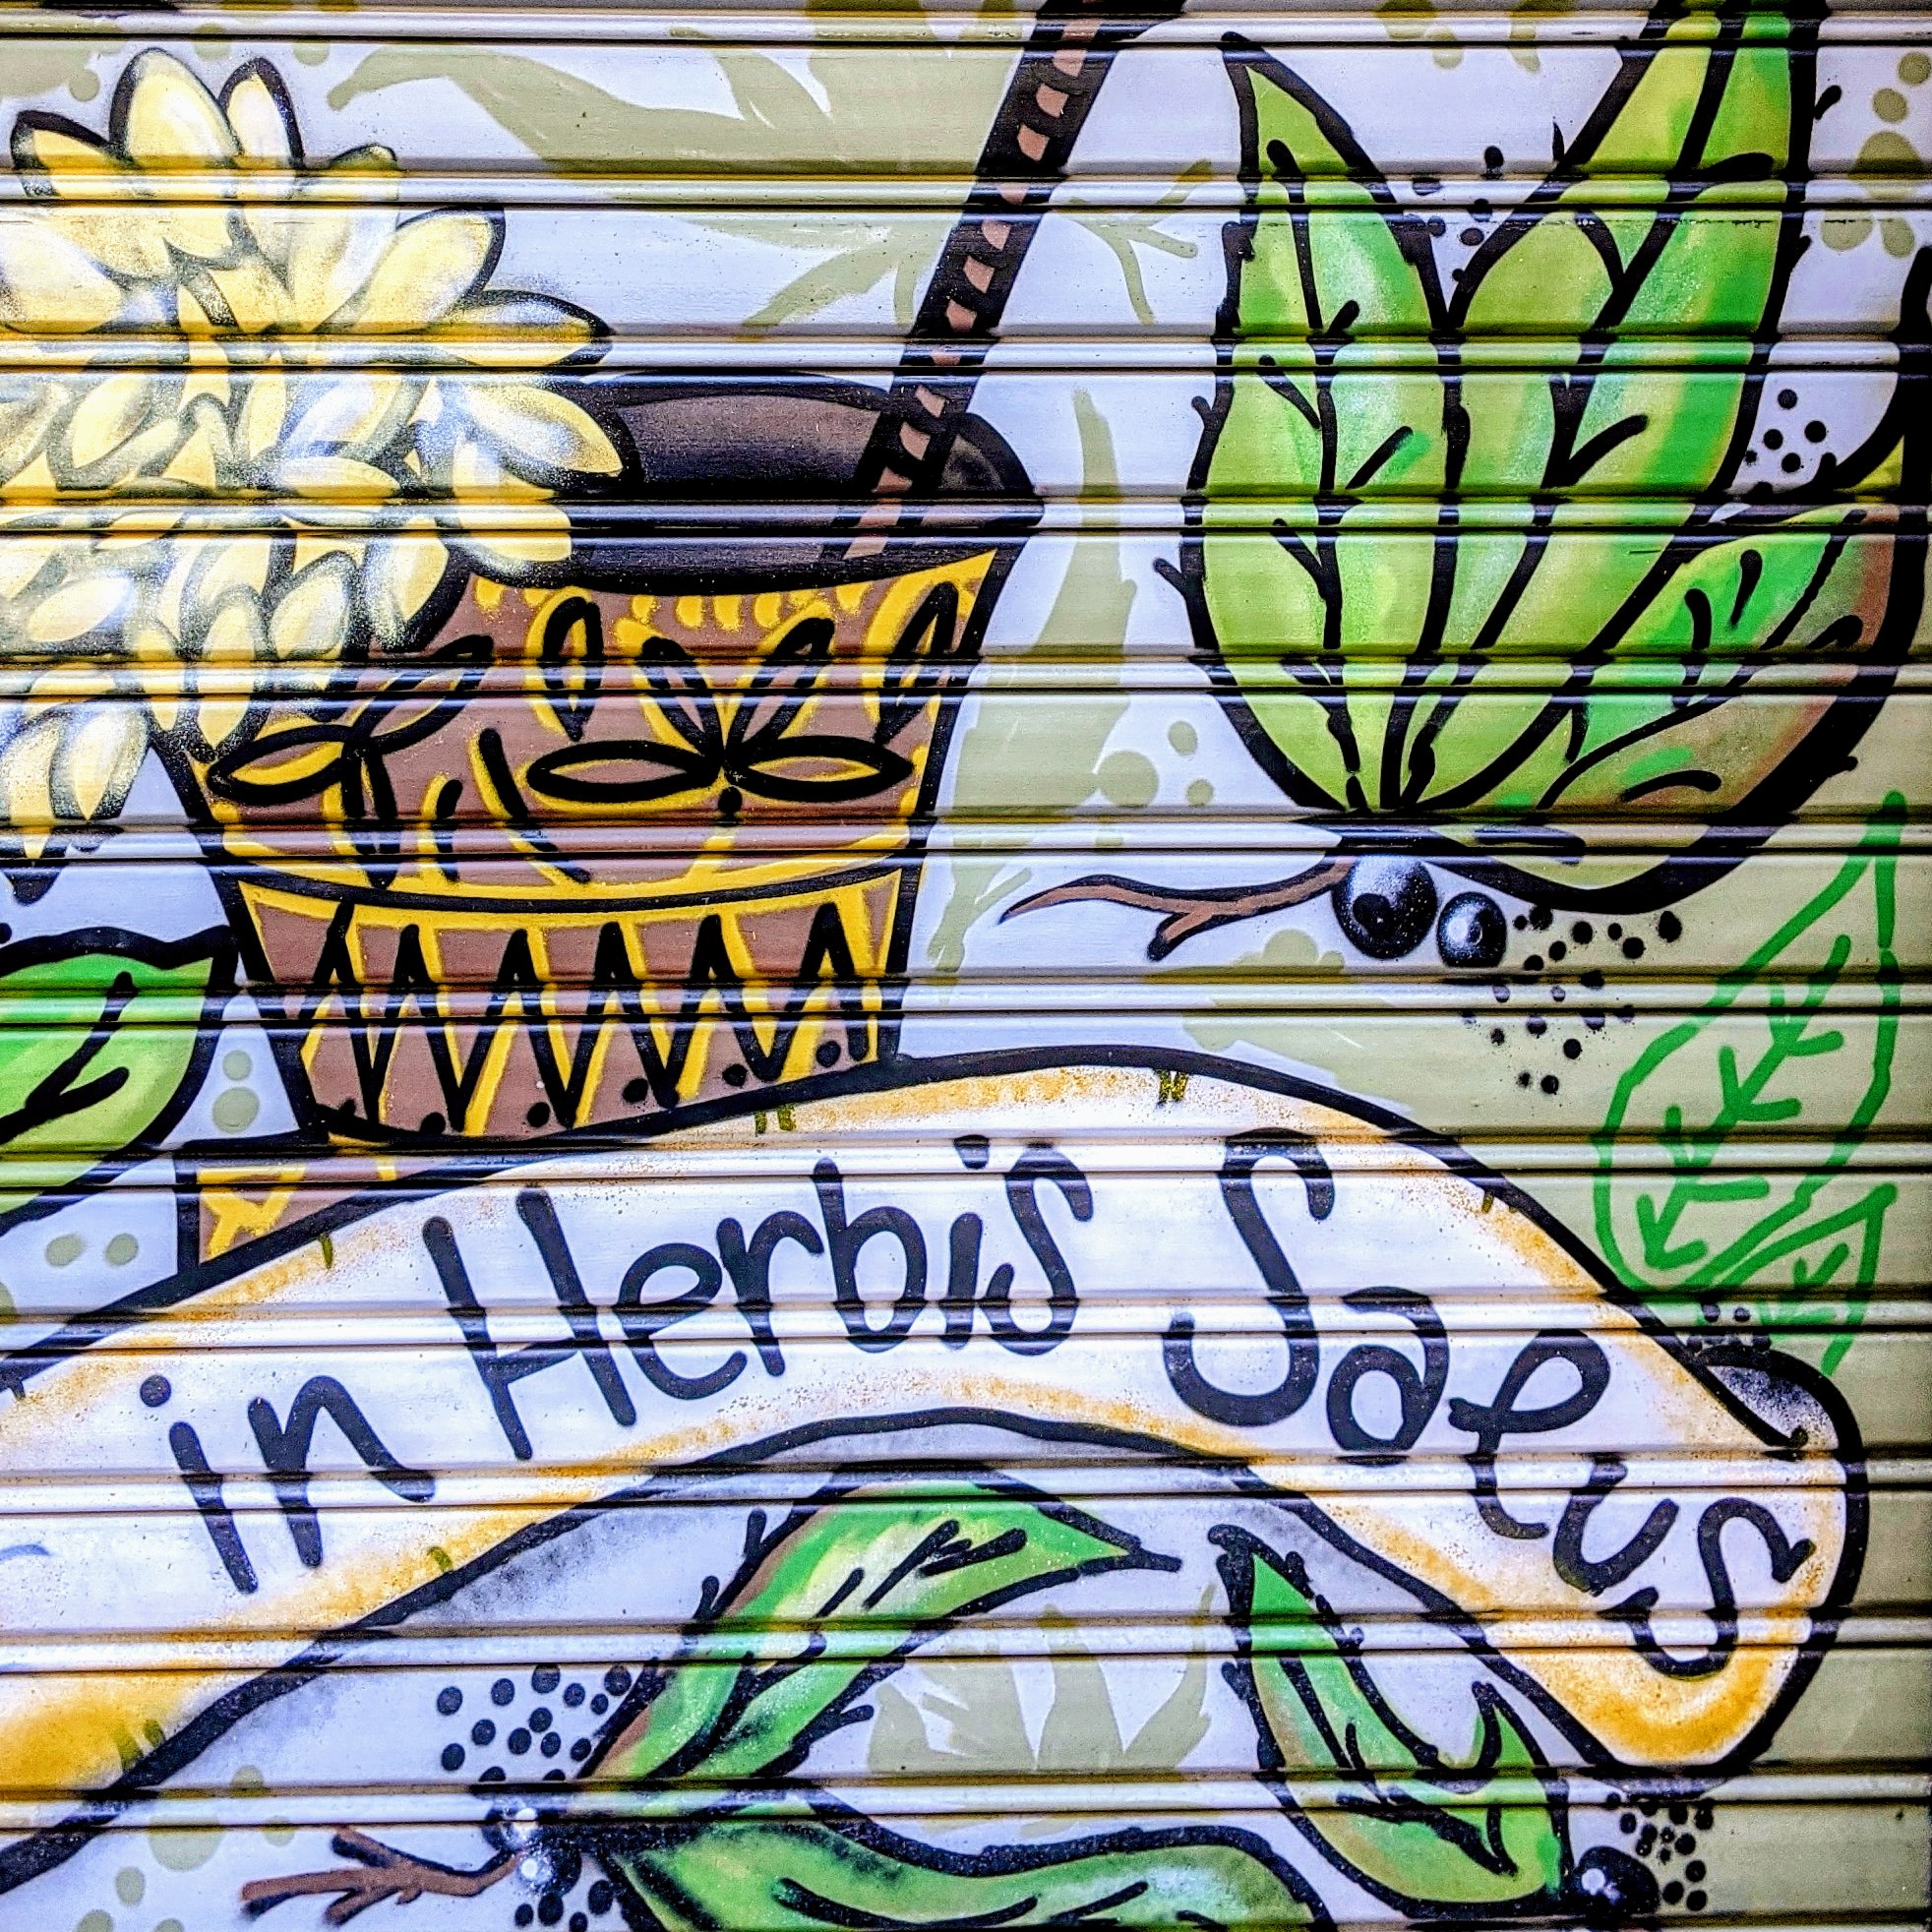 in Herbis Salus